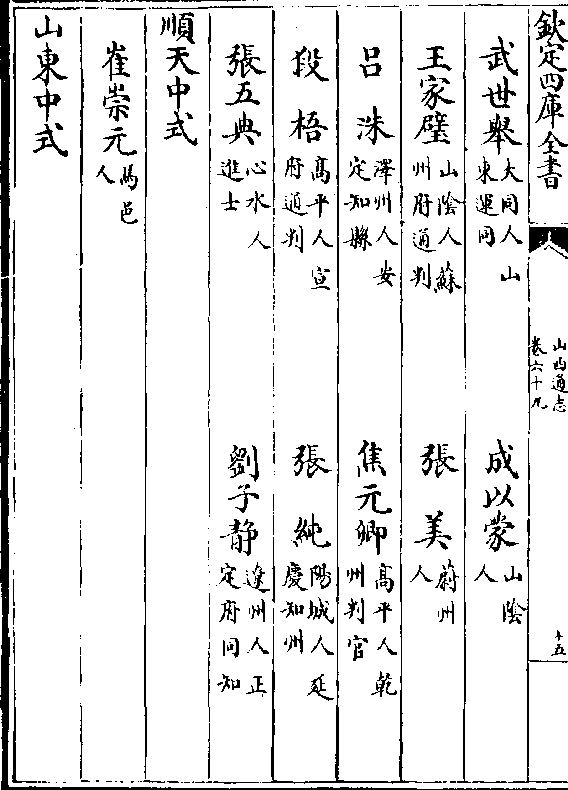 欽定四庫全書
山西通志
卷六十九
十五
武世舉大同人山東運同
成以蒙山陰人
王家璧山陰人蘇州府通判
張美蔚州人
呂洙澤州人安定知縣
焦元卿高平人乾州判官
段梧高平人宣府通判
張純陽城人延慶知州
張五典心水人進士
劉子静遼州人正定府同知
順天中式
崔崇元馬邑人
山東中式